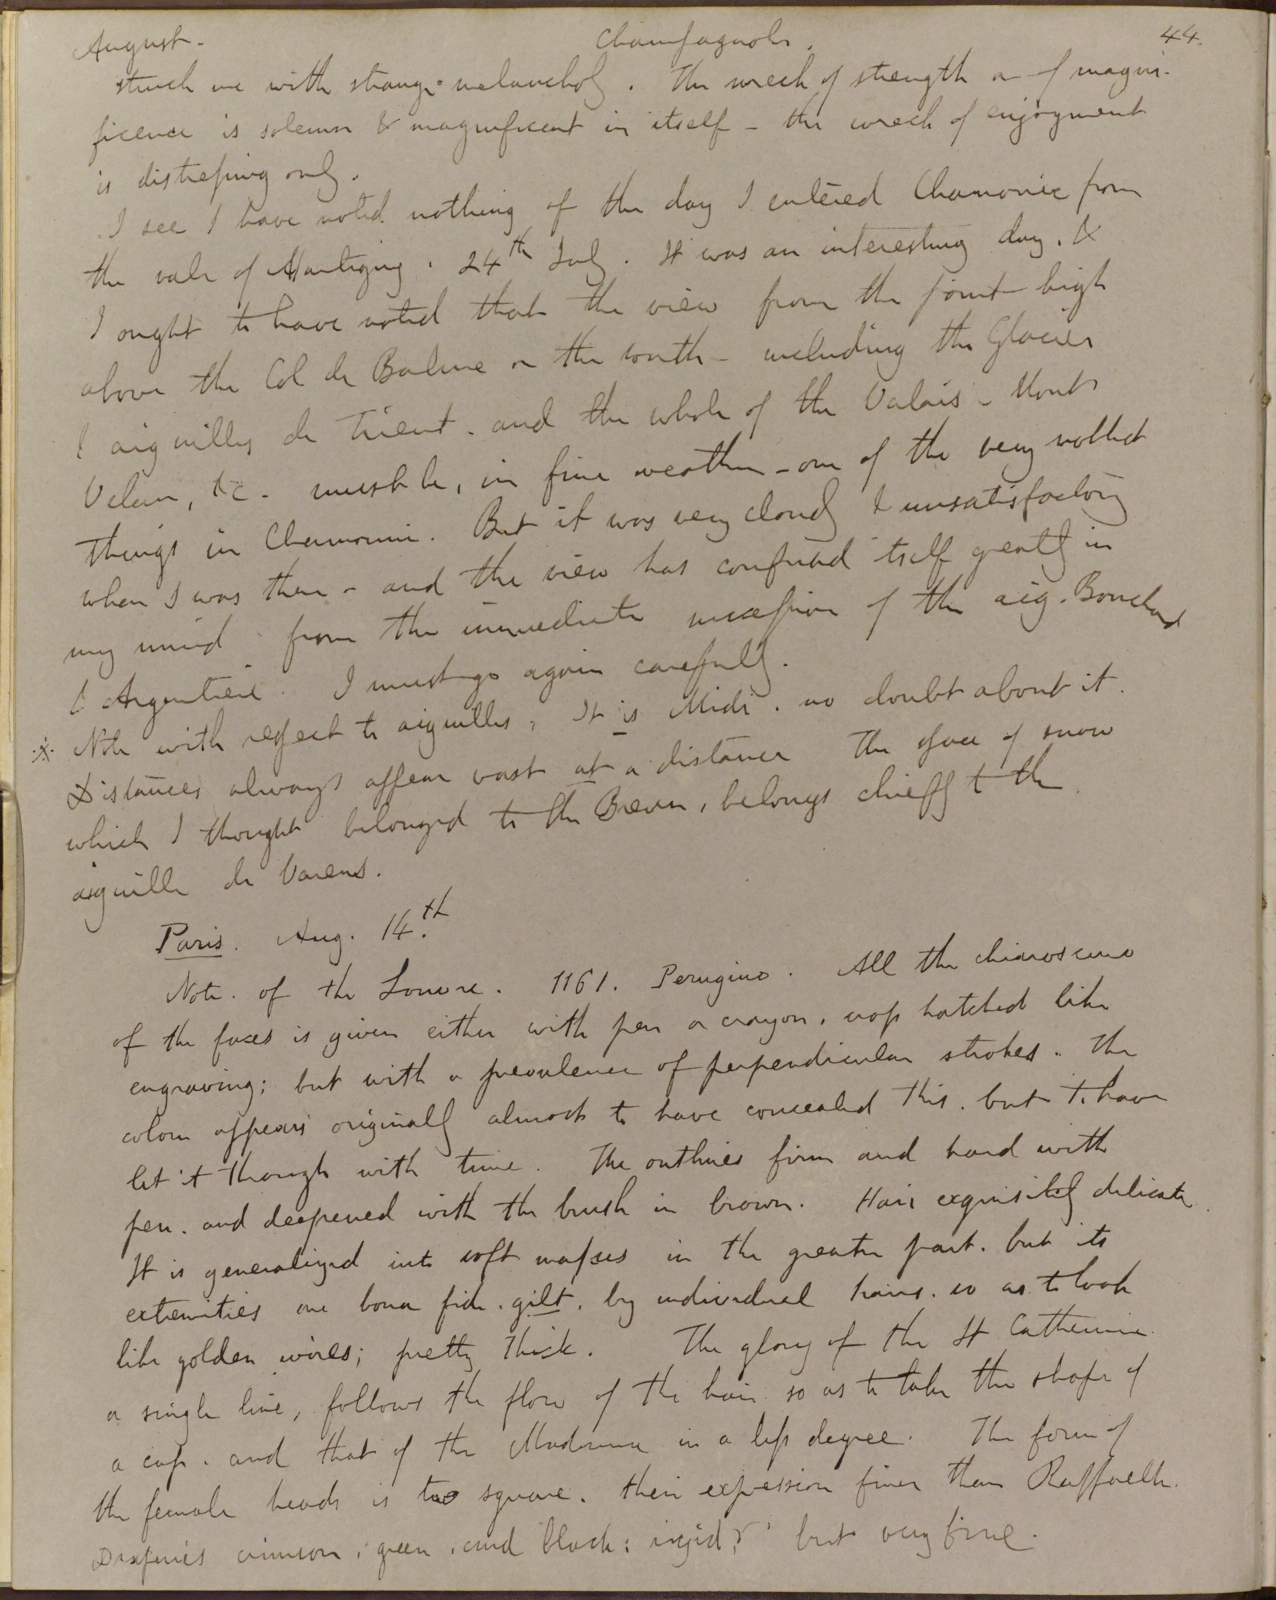 August. Champagnole. 44.
struck me with strange melancholy. The wreck of strength or of magni-
ficence is solemn & magnificent in itself - the wreck of enjoyment
is distressing only.
I see I have noted nothing of the day I entered Chamonix from
the vale of Martigny. 24th July. It was an interesting day, &
I ought to have noted that the view from the point high
above the Col de Balme on the south - including the Glacier
& aiguilles de Trient. and the whole of the Valais - Mont
Velan, &c. must be, in fine weather - one of the very noblest
things in Chamonix. But it was very cloudy & unsatisfactory
when I was there - and the view has confused itself greatly in
my mind from the immediate succession of the aig. Bouchard
& Argentiere. I must go again carefully.
Note with respect to aiguilles, It is Midi. no doubt about it.
Distances always appear vast at a distance The space of snow
which I thought belonged to the Breven, belongs chiefly to the
aiguille de Varens.
Paris. Aug. 14th.
Note. of the Louvre. 1161. Perugino. All the chiaroscuro
of the faces is given either with pen or crayon, cross hatched like
engraving; but with a prevalence of perpendicular strokes. The
colour appears originally almost to have concealed this. but to have
let it through with time. The outlines firm and hard with
pen. and deepened with the brush in brown. Hair exquisitely delicate.
It is generalized into soft masses in the greater part. but its
extremities are bona fide. gilt. by individual hairs. so as to look
like golden wires; pretty thick. The glory of the St Catherine
a single line, follows the flow of the hair so as to take the shape of
a cap. and that of the Madonna in a less degree. The form of
the female heads is too square. their expression finer than Raffaelle.
Draperies crimson, green, and black: rigid, but very fine.